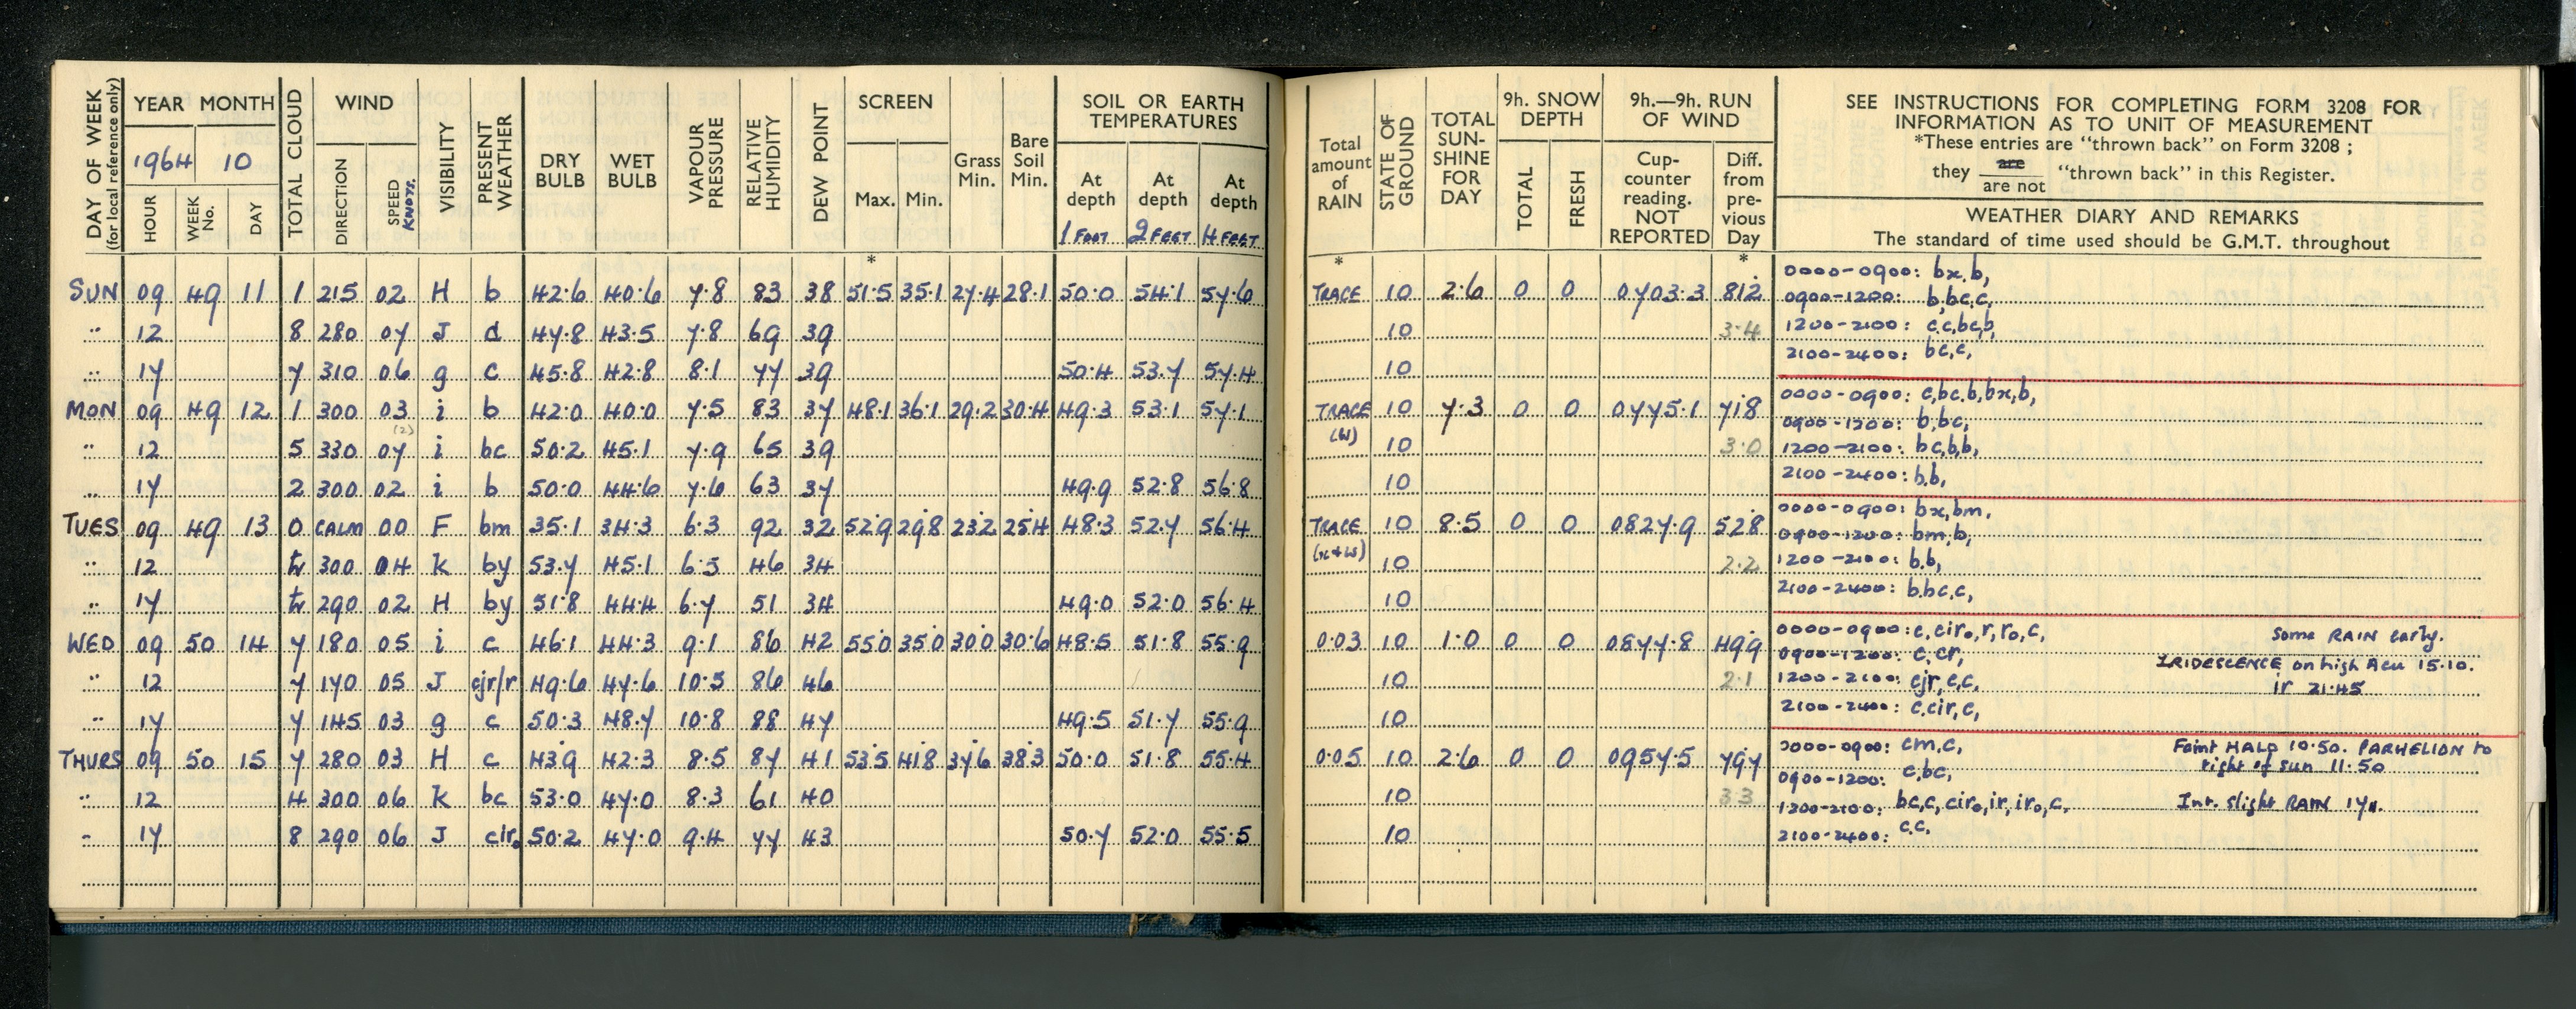 DAY OF WEEK (for local reference only) YEAR MONTH TOTAL CLOUD WIND VISIBILITY PRESENT WEATHER DRY BULB WET BULB VAPOUR PRESSURE RELATIVE HUMIDITY DEW POINT SCREEN Grass Min. Bare Soil Min. SOIL OR EARTH TEMPERATURES
1964 10
HOUR WEEK No. DAY DIRECTION SPEED KNOTS. Max. Min. At depth 1 FOOT At depth 2 FEET At depth 4 FEET
*
SUN 09 49 11 1 215 02 H b 42.6 40.6 7.8 83 38 51.5 35.1 27.4 28.1 50.0 54.1 57.6
" 12 8 280 07 J d 47.8 43.5 7.8 69 39
" 17 7 310 06 g c 45.8 42.8 8.1 77 39 50.4 53.7 57.4
MON 09 49 12 1 300 03 i b 42.0 40.0 7.5 83 37 48.1 36.1 29.2 30.4 49.3 53.1 57.1
(2)
" 12 5 330 07 i bc 50.2 45.1 7.9 65 39
" 17 2 300 02 i b 50.0 44.6 7.6 63 37 49.9 52.8 56.8
TUES 09 49 13 0 CALM 00 F bm 35.1 34.3 6.3 92 32 52.9 29.8 23.2 25.4 48.3 52.7 56.4
" 12 tr 300 04 K by 53.7 45.1 6.5 46 34
" 17 tr 290 02 H by 51.8 44.4 6.7 51 34 49.0 52.0 56.4
WED 09 50 14 7 180 05 i c 46.1 44.3 9.1 86 42 55.0 35.0 30.0 30.6 48.5 51.8 55.9
" 12 7 170 05 J cjr/r 49.6 47.6 10.5 86 46
" 17 7 145 03 g c 50.3 48.7 10.8 88 47 49.5 51.7 55.9
THURS 09 50 15 7 280 03 H c 43.9 42.3 8.5 87 41 53.5 41.8 37.6 38.3 50.0 51.8 55.4
" 12 4 300 06 K bc 53.0 47.0 8.3 61 40
" 17 8 290 06 J ciro 50.2 47.0 9.4 77 43 50.7 52.0 55.5
Total amount of RAIN STATE OF GROUND TOTAL SUN-SHINE FOR DAY 9h. SNOW DEPTH TOTAL FRESH 9h.—9h. RUN OF WIND Cup-counter reading. NOT REPORTED Diff. from pre-vious Day
SEE INSTRUCTIONS FOR COMPLETING FORM 3208 FOR
INFORMATION AS TO UNIT OF MEASUREMENT
*These entries are "thrown back" on Form 3208 ;
they are / are not "thrown back" in this Register.
WEATHER DIARY AND REMARKS
The standard of time used should be G.M.T. throughout
* *
TRACE 10 2.6 0 0 0703.3 81.2 0000-0900: bx,b,
0900-1200: b,bc,c,
10 3.4 1200-2100: c,c,bc,b,
10 2100-2400: bc,c,
TRACE (W) 10 7.3 0 0 0775.1 71.8 0000-0900: c,bc,b,bx,b,
0900-1200: b,bc,
10 3.0 1200-2100: bc,b,b,
10 2100-2400: b,b,
TRACE (x+W) 10 8.5 0 0 0827.9 52.8 0000-0900: bx,bm,
0900-1200: bm,b,
10 2.2 1200-2100: b,b,
10 2100-2400: b,bc,c,
0.03 10 1.0 0 0 0877.8 49.9 0000-0900: c,ciro,r,ro,c, Some RAIN early.
0900-1200: c,cr, IRIDESCENCE on high Acu 15.10.
10 2.1 1200-2100: cjr,c,c, ir 21.45
10 2100-2400: c,cir,c,
0.05 10 2.6 0 0 0957.5 79.7 0000-0900: cm,c, Faint HALO 10.50. PARHELION to
0900-1200: c,bc, right of sun 11.50
10 3.3 1200-2100: bc,c,ciro,ir,iro,c, Int. slight RAIN 17h.
10 2100-2400: c,c,